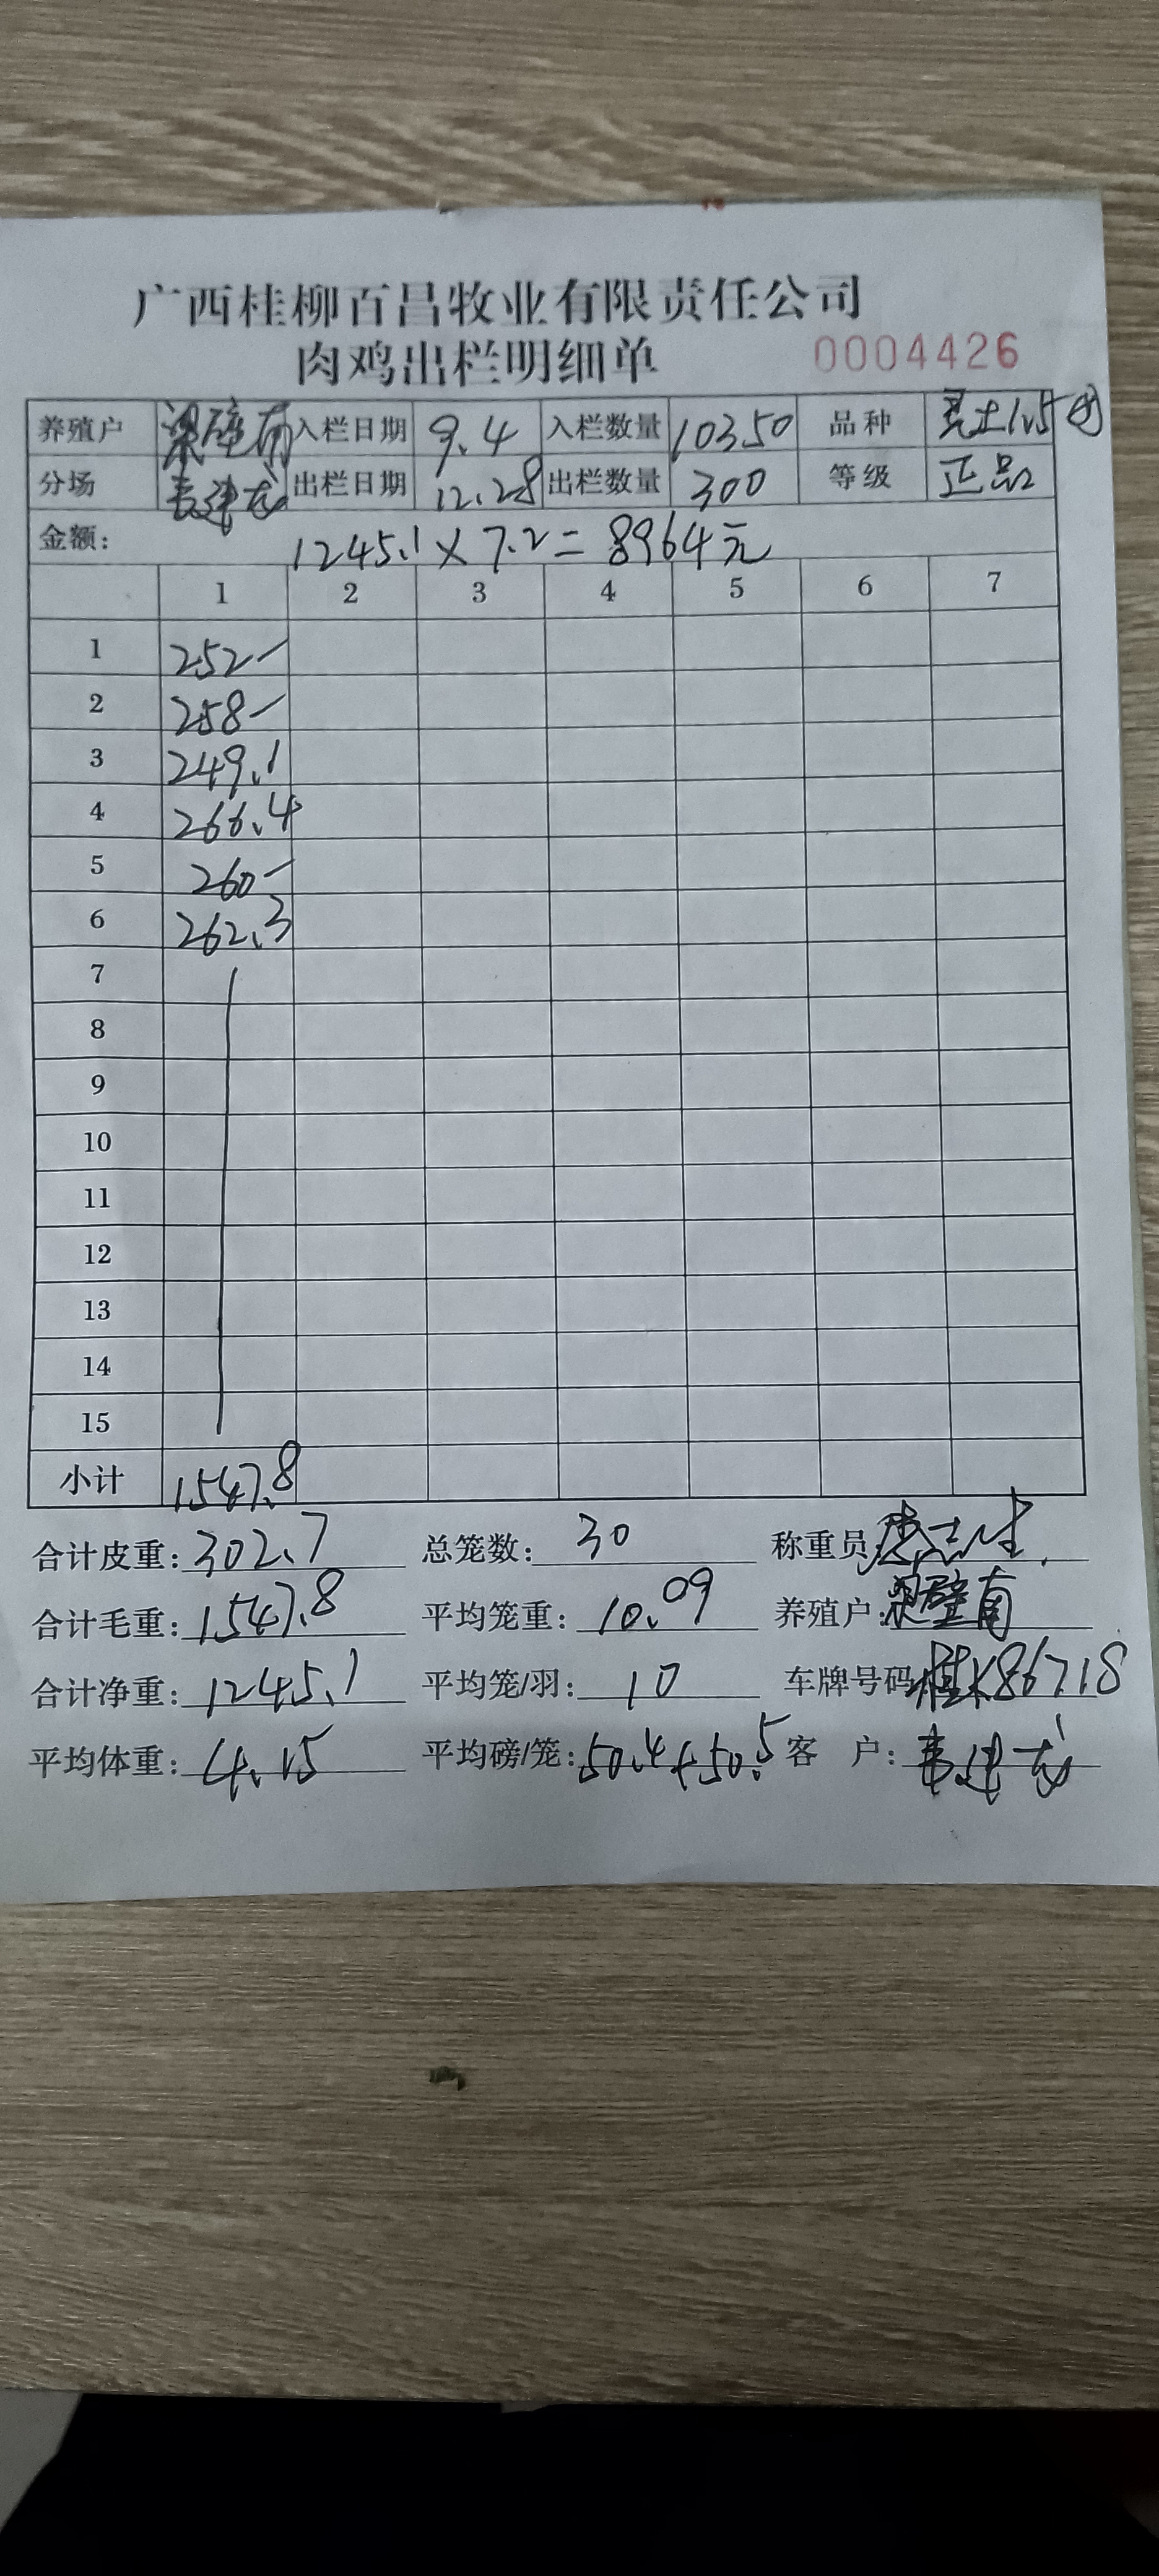 广西桂柳百昌牧业有限责任公司
肉鸡出栏明细单 0004426
养殖户 梁壁南 入栏日期 9.4 入栏数量 10350 品种 土1.5
分场 韦建龙 出栏日期 12.28 出栏数量 300 等级 正品
金额: 1245.1×7.2=8964元
1 2 3 4 5 6 7
1 252-
2 258-
3 249.1
4 266.4
5 260-
6 262.3
7
8
9
10
11
12
13
14
15
小计 1547.8
合计皮重: 302.7 总笼数: 30 称重员
合计毛重: 1547.8 平均笼重: 10.09 养殖户: 梁壁南
合计净重: 1245.1 平均笼/羽: 10 车牌号码 桂K86718
平均体重: 4.15 平均磅/笼: 50.4+50.5 客 户: 韦建龙